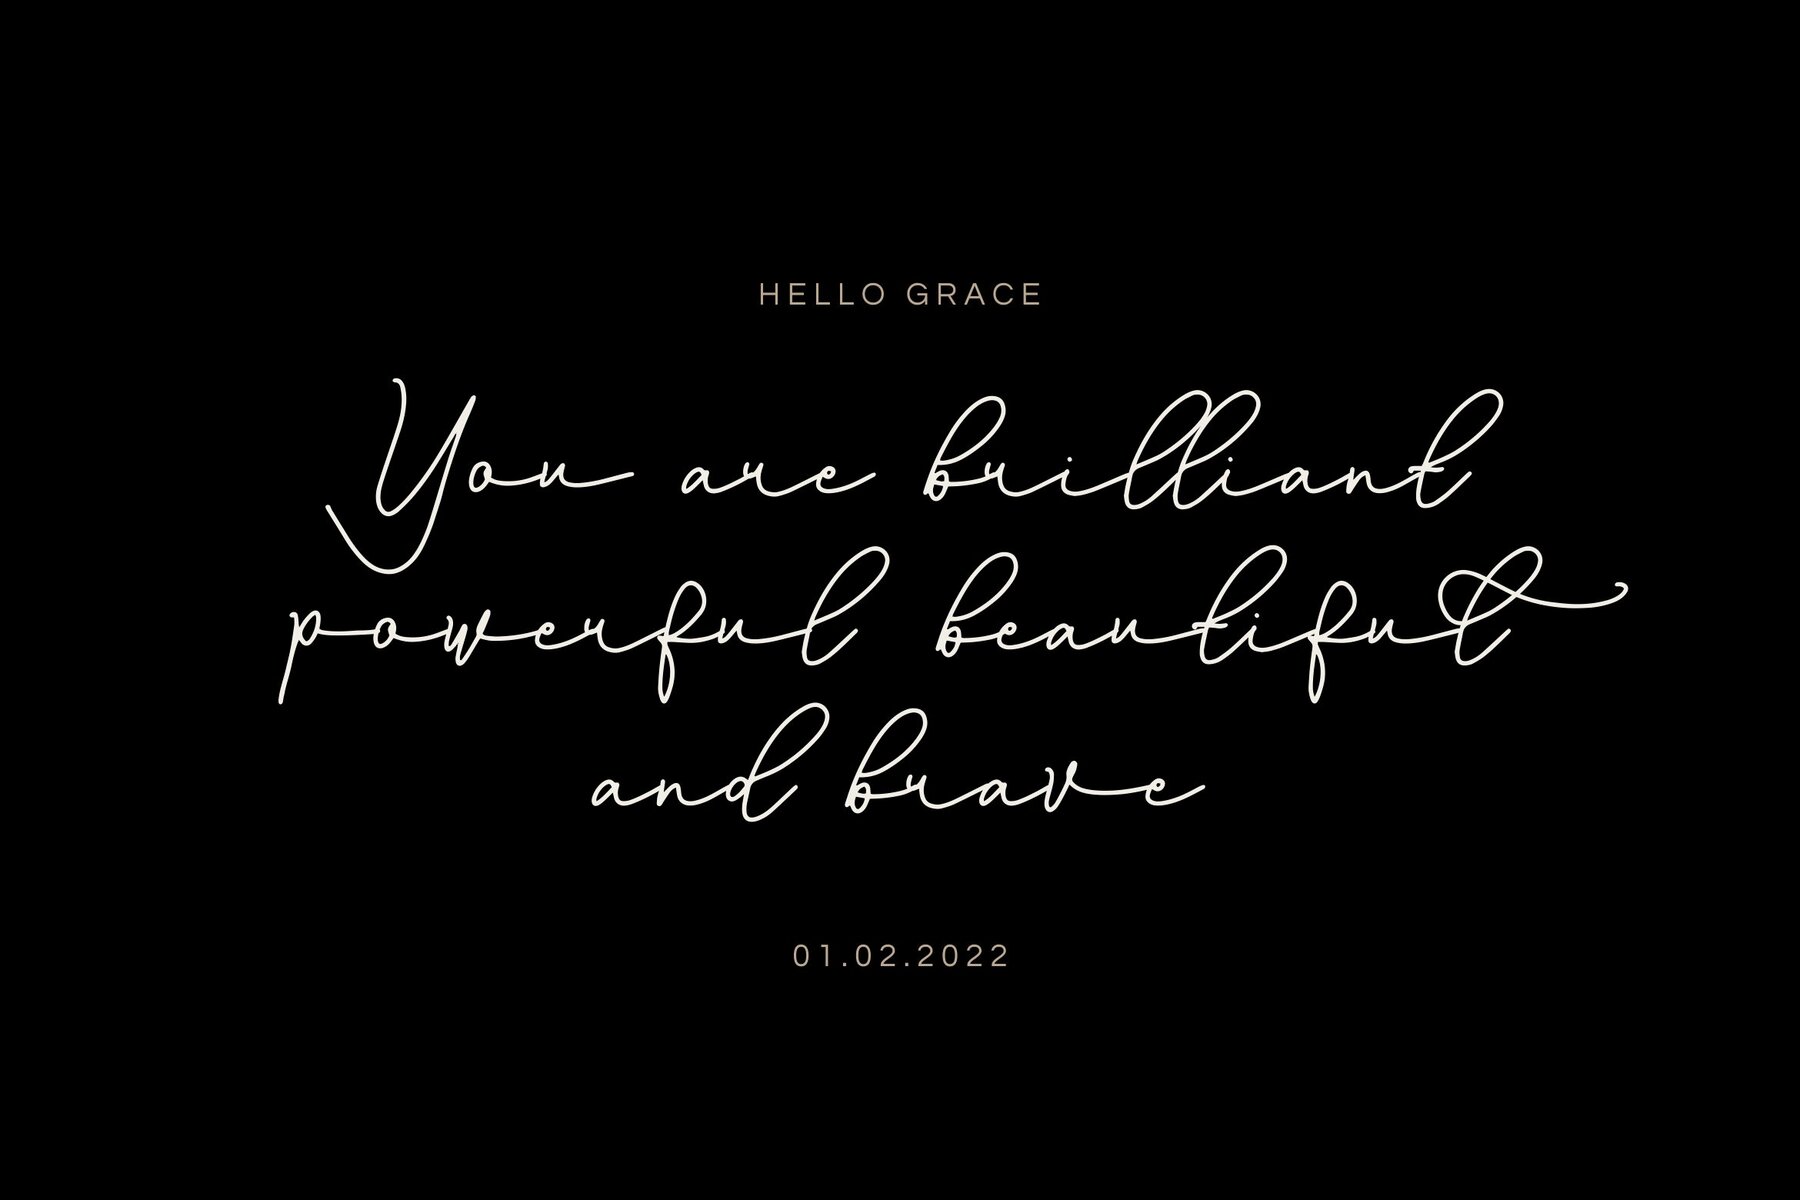 HELLO GRACE
You are brilliant
powerful beautiful
and brave
01.02.2022